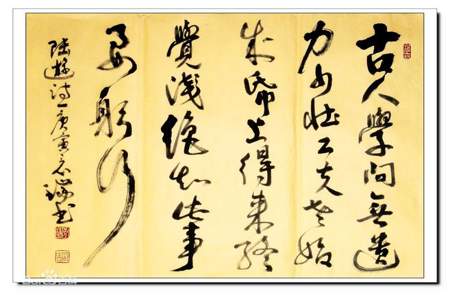 古人學問無遺
力少壯工夫老始
成紙上得來終
覺淺絕知此事
要躬行
陸遊詩一庚寅瑞書